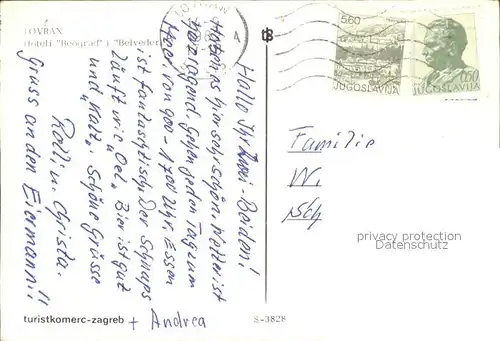 LOVRAN
Hoteli "Beograd" i "Belvedere"
Hallo Ihr Zwei-Beiden!
Haben es hier sehr schön. Wetter ist
hervorragend. Gehen jeden Tag zum
Meer von 900 - 1700 Uhr. Essen
ist fantastisch. Der Schnaps
läuft wie "Oel". Bier ist gut
und "Kalt". Schöne Grüsse
Rolli u. Christa.
Gruss an den Eiermann!!
+ Andrea
turistkomerc-zagreb
S-3828
5.60
JUGOSLAVIJA
0,50
JUGOSLAVIJA
Familie
W.
privacy protection
Datenschutz